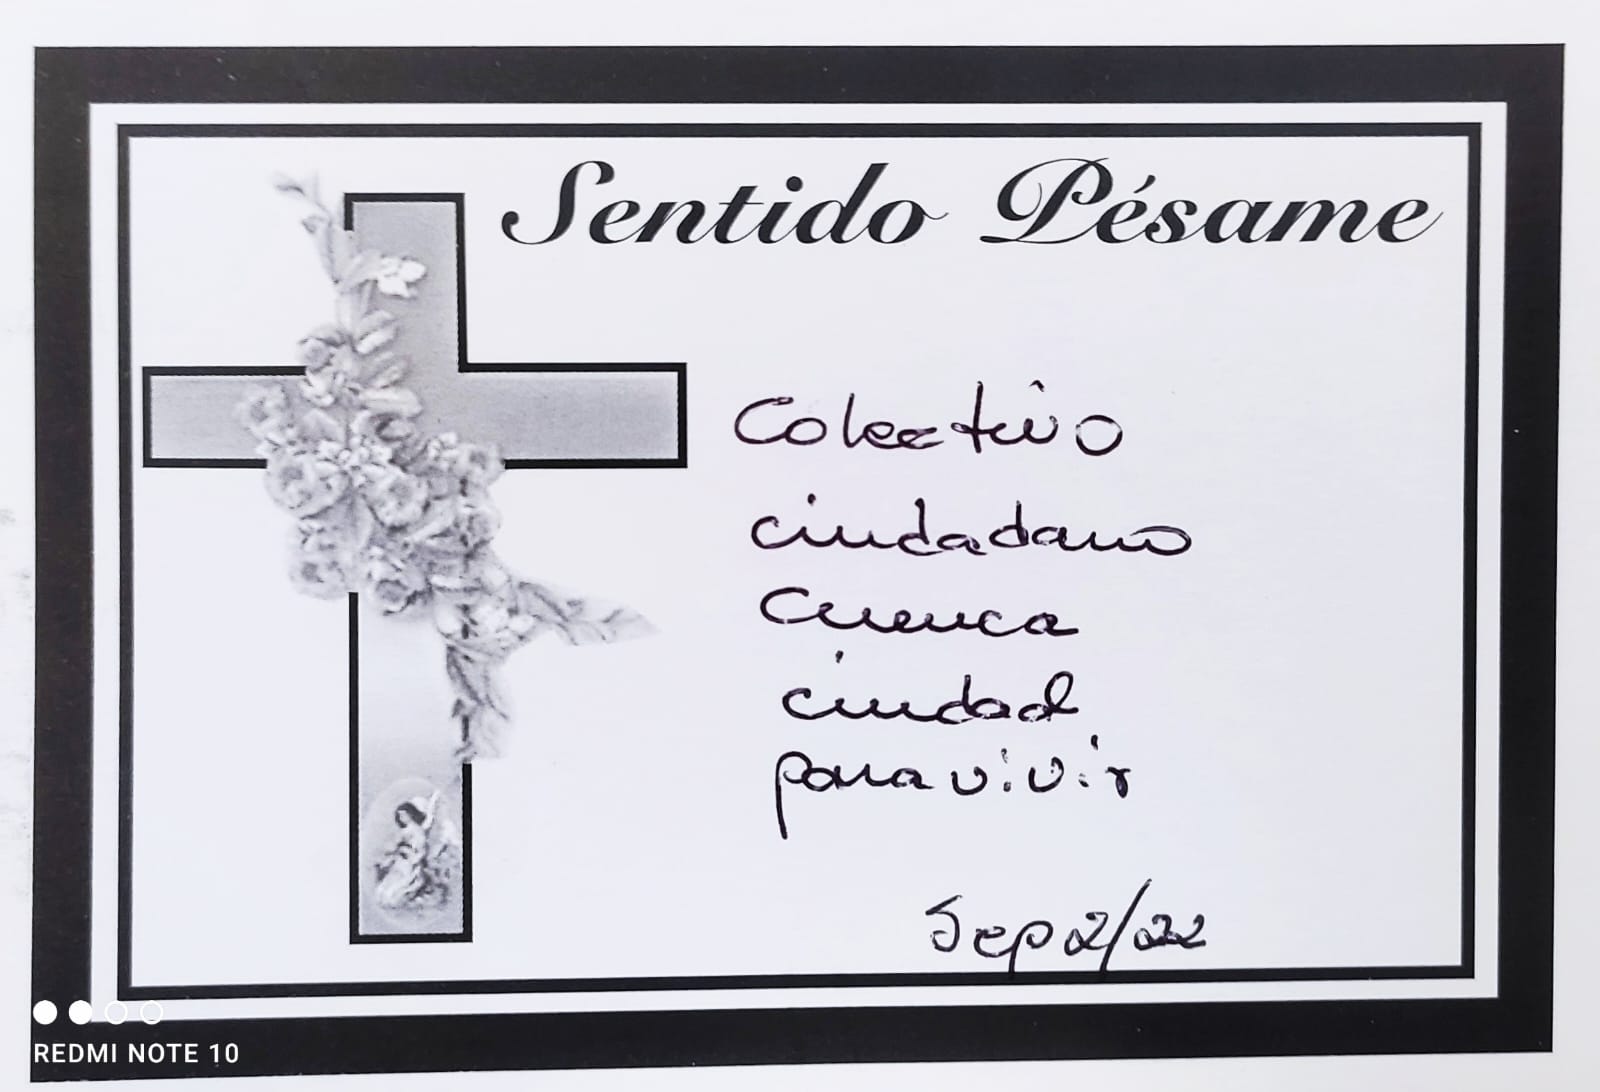 Sentido Pésame
Colectivo
ciudadano
Cuenca
ciudad
para vivir
Sep 2/22
REDMI NOTE 10